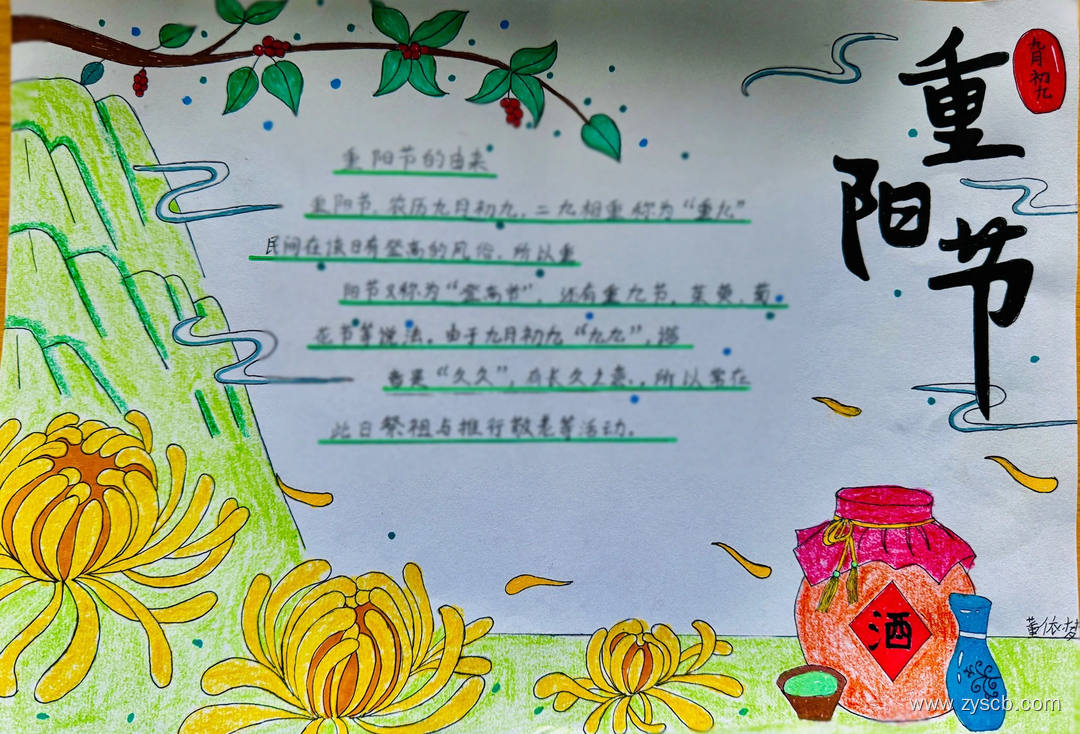 重阳节
九月初九
重阳节的由来
重阳节,农历九月初九,二九相重称为“重九”
民间在该日有登高的风俗,所以重
阳节又称为“登高节”。还有重九节、茱萸、菊
花节等说法。由于九月初九“九九”,谐
音是“久久”,有长久之意,所以常在
此日祭祖与推行敬老等活动。
酒
董依梦
www.zyscb.com